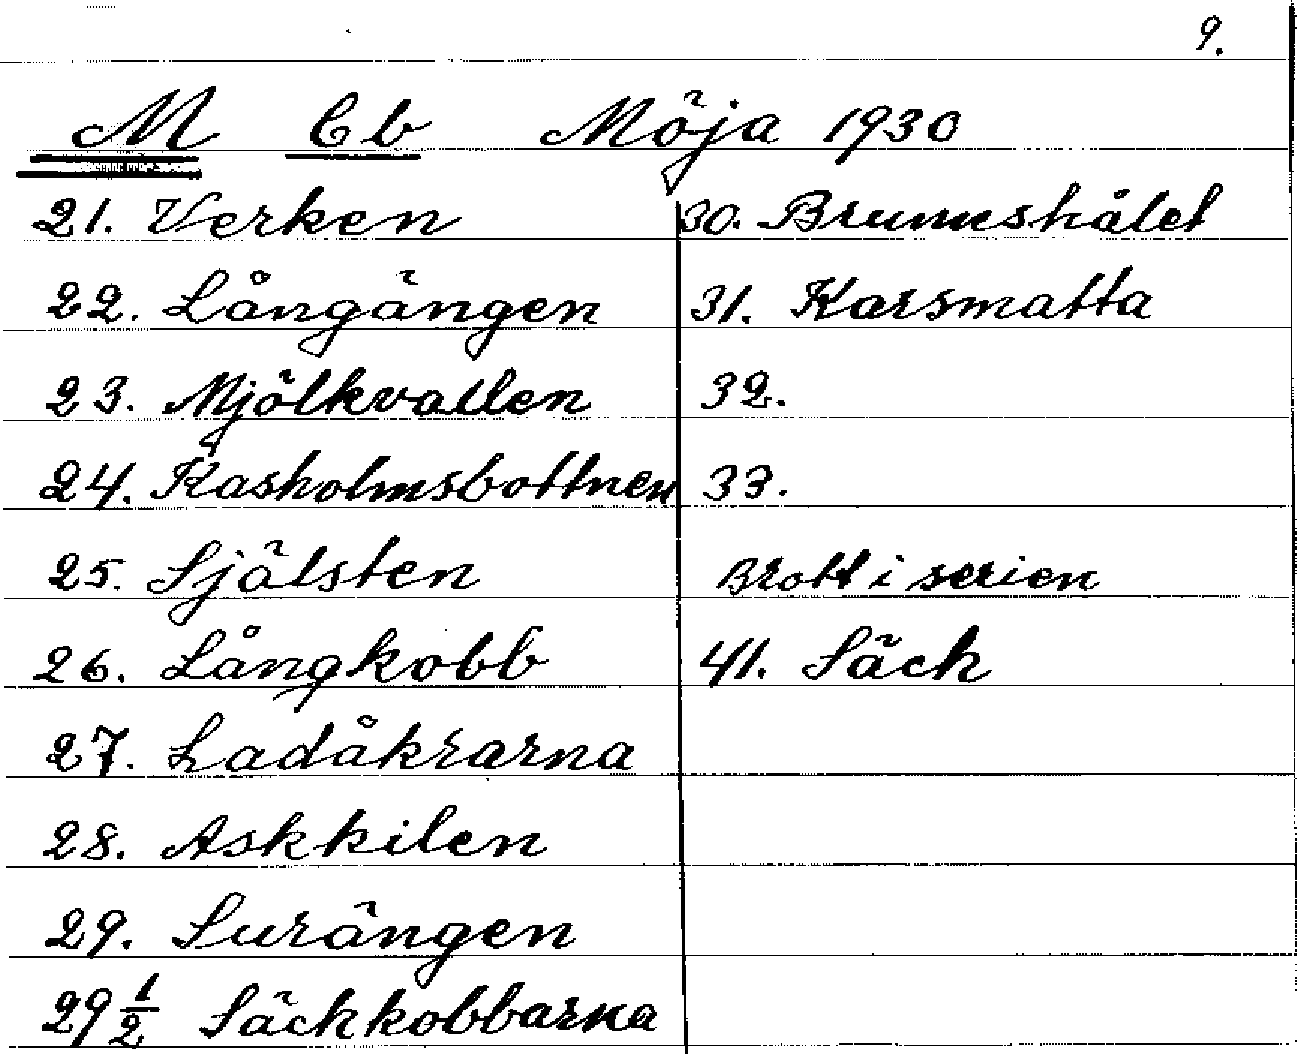 9.
M Cb Möja 1930
21. Verken
22. Långängen
23. Mjölkvallen
24. Kasholmsbottnen
25. Själsten
26. Långkobb
27. Ladåkrarna
28. Askkilen
29. Surängen
29 1/2 Säckkobbarna
30. Brunnshålet
31. Karsmatta
32.
33.
Brott i serien
41. Säck